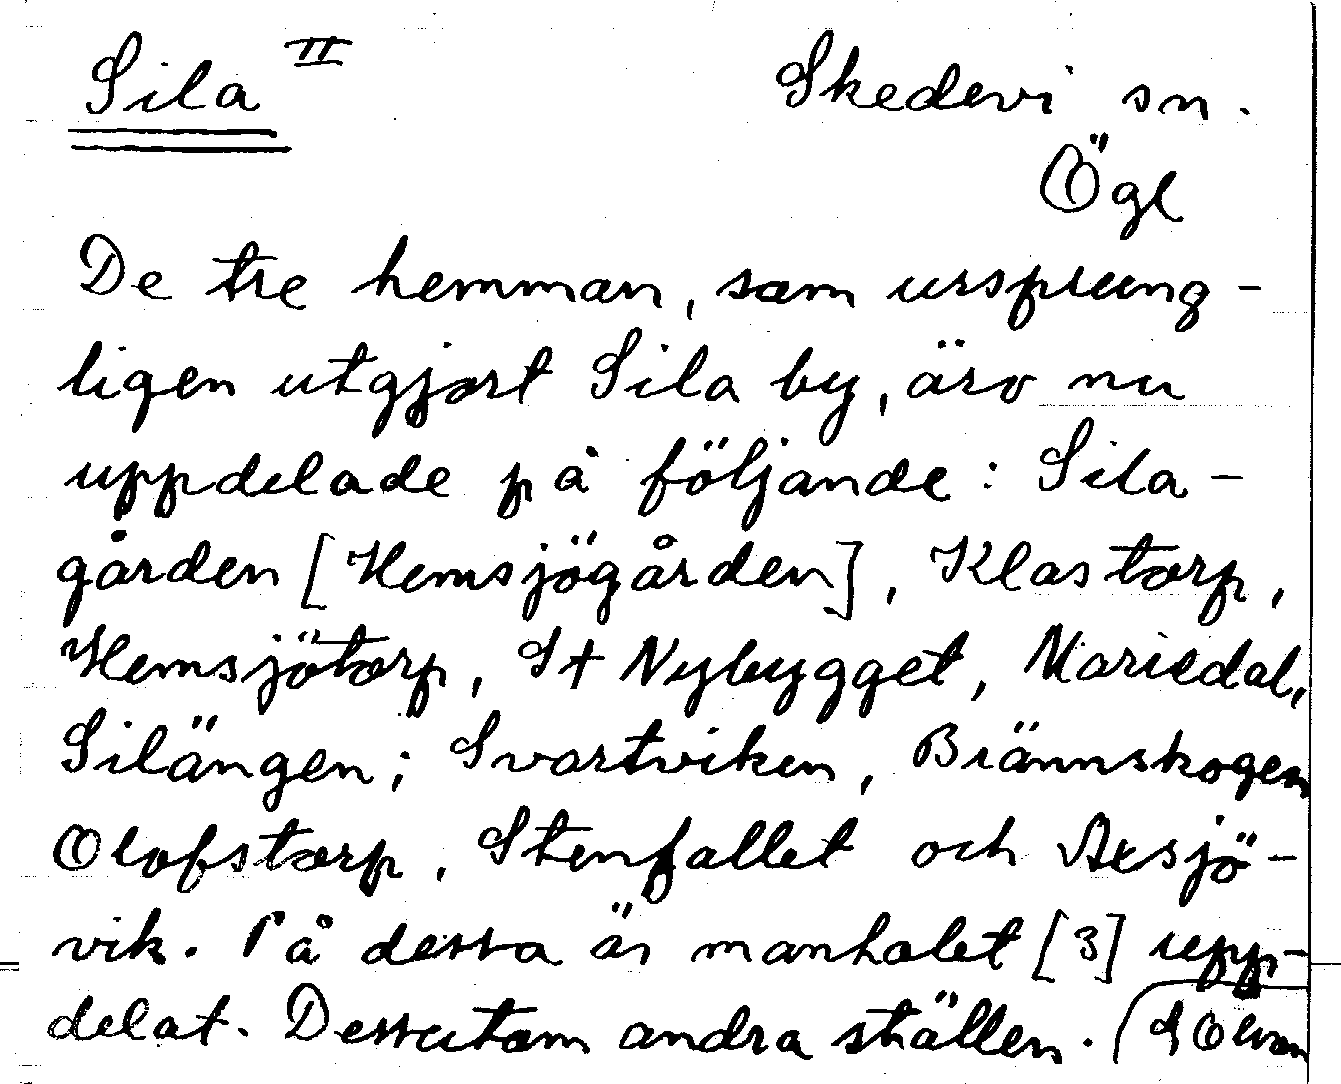 Sila II
Skedevi sn.
Ögl
De tre hemman, som ursprung-
ligen utgjort Sila by, äro nu
uppdelade på följande: Sila-
gården [Hemsjögården], Klastorp,
Hemsjötorp, St Nybygget, Mariedal,
Silängen; Svartviken, Brännskogen
Olofstorp, Stenfallet och Axsjö-
vik. På dessa är manhalet [3] upp-
delat. Dessutom andra ställen.